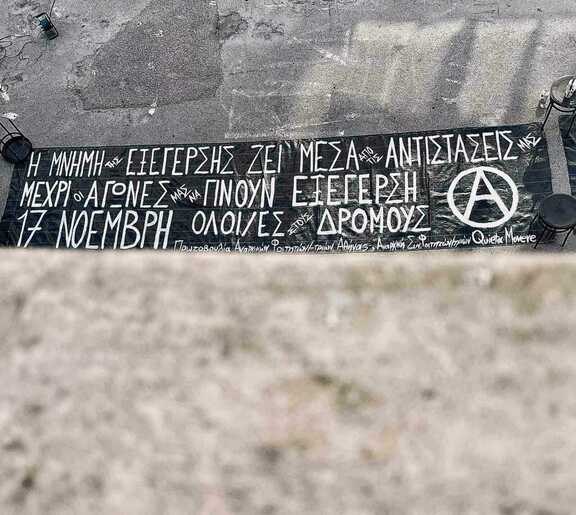 Η ΜΝΗΜΗ ΤΗΣ ΕΞΕΓΕΡΣΗΣ ΖΕΙ ΜΕΣΑ ΑΠΟ ΤΙΣ ΑΝΤΙΣΤΑΣΕΙΣ ΜΑΣ
ΜΕΧΡΙ ΟΙ ΑΓΩΝΕΣ ΜΑΣ ΝΑ ΓΙΝΟΥΝ ΕΞΕΓΕΡΣΗ
17 ΝΟΕΜΒΡΗ ΟΛΟΙ/ΕΣ ΣΤΟΥΣ ΔΡΟΜΟΥΣ
Πρωτοβουλία Αναρχικών Φοιτητών/-τριών Αθήνας, Αναρχική Quieta Movere